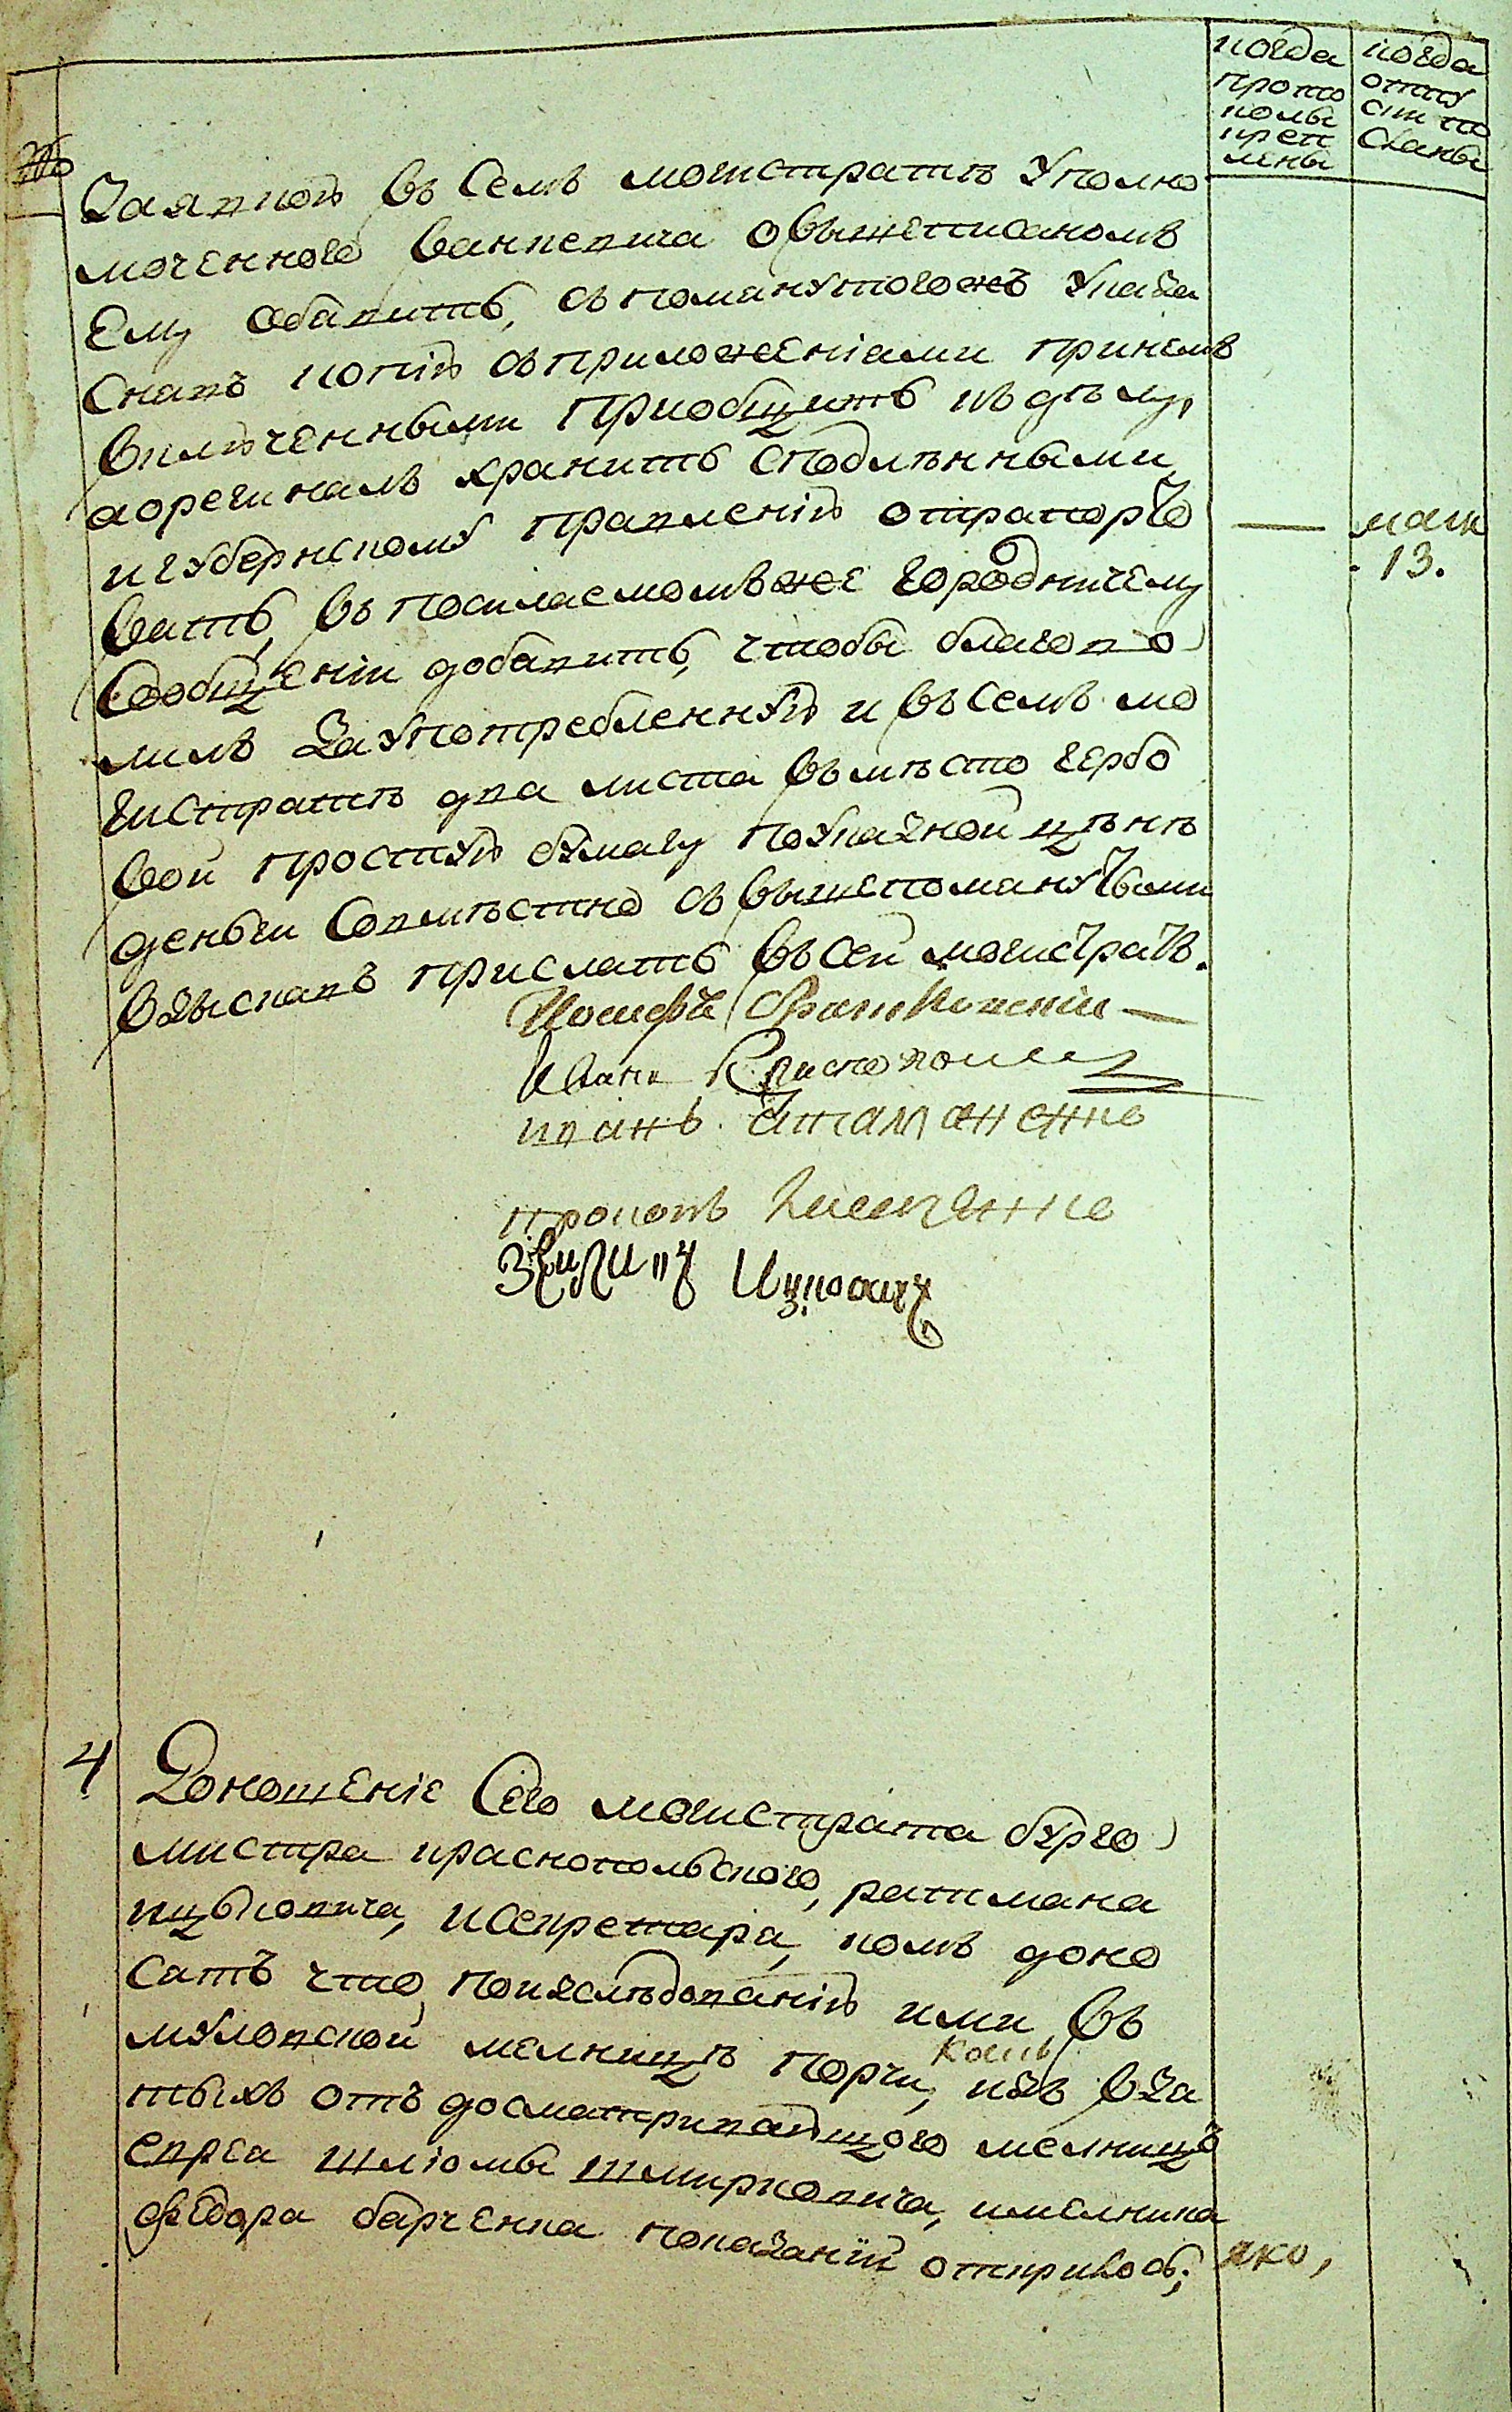 когда
прото
колы
креп
лены
когда
отпу
ски по
сланы
№
Заявкою въ семъ магистратѣ Уполно
моченного Ванкевича овышеписаномъ
Ему обавить, съ поманутогожъ Указа
снавъ копію съ приложеніами при немъ
включенными приобщить къ дѣлу,
аорегиналъ хранить сподлѣнными,
и губернскому правленію отрапорто
вать, въ посилаемомъже городничему
Сообщеніи добавить, чтобы благово
лилъ За употребленную и въ семъ ма
гистратѣ два листа въмѣсто гербо
вой простую бумагу по указной цѣнѣ
деньги совмѣстно съ вышепоманутыми
взыскавъ прислать въ сей магистратъ.
маия
13.
Иосифъ
Иванъ Краснополс
иванъ Атаманенко
прокопъ
4
Доношеніе сего магистрата бурго
мистра краснопольского, ратмана
ицковича, и секретара, коимъ доно
сатъ что по изслѣдованію ими, въ
муловской мелницѣ порчи, изъ вза
тыхъ отъ досматривающого мелницо
еврея шліомы шмирковича, имелника
федора барченка показаній открилось,
яко,